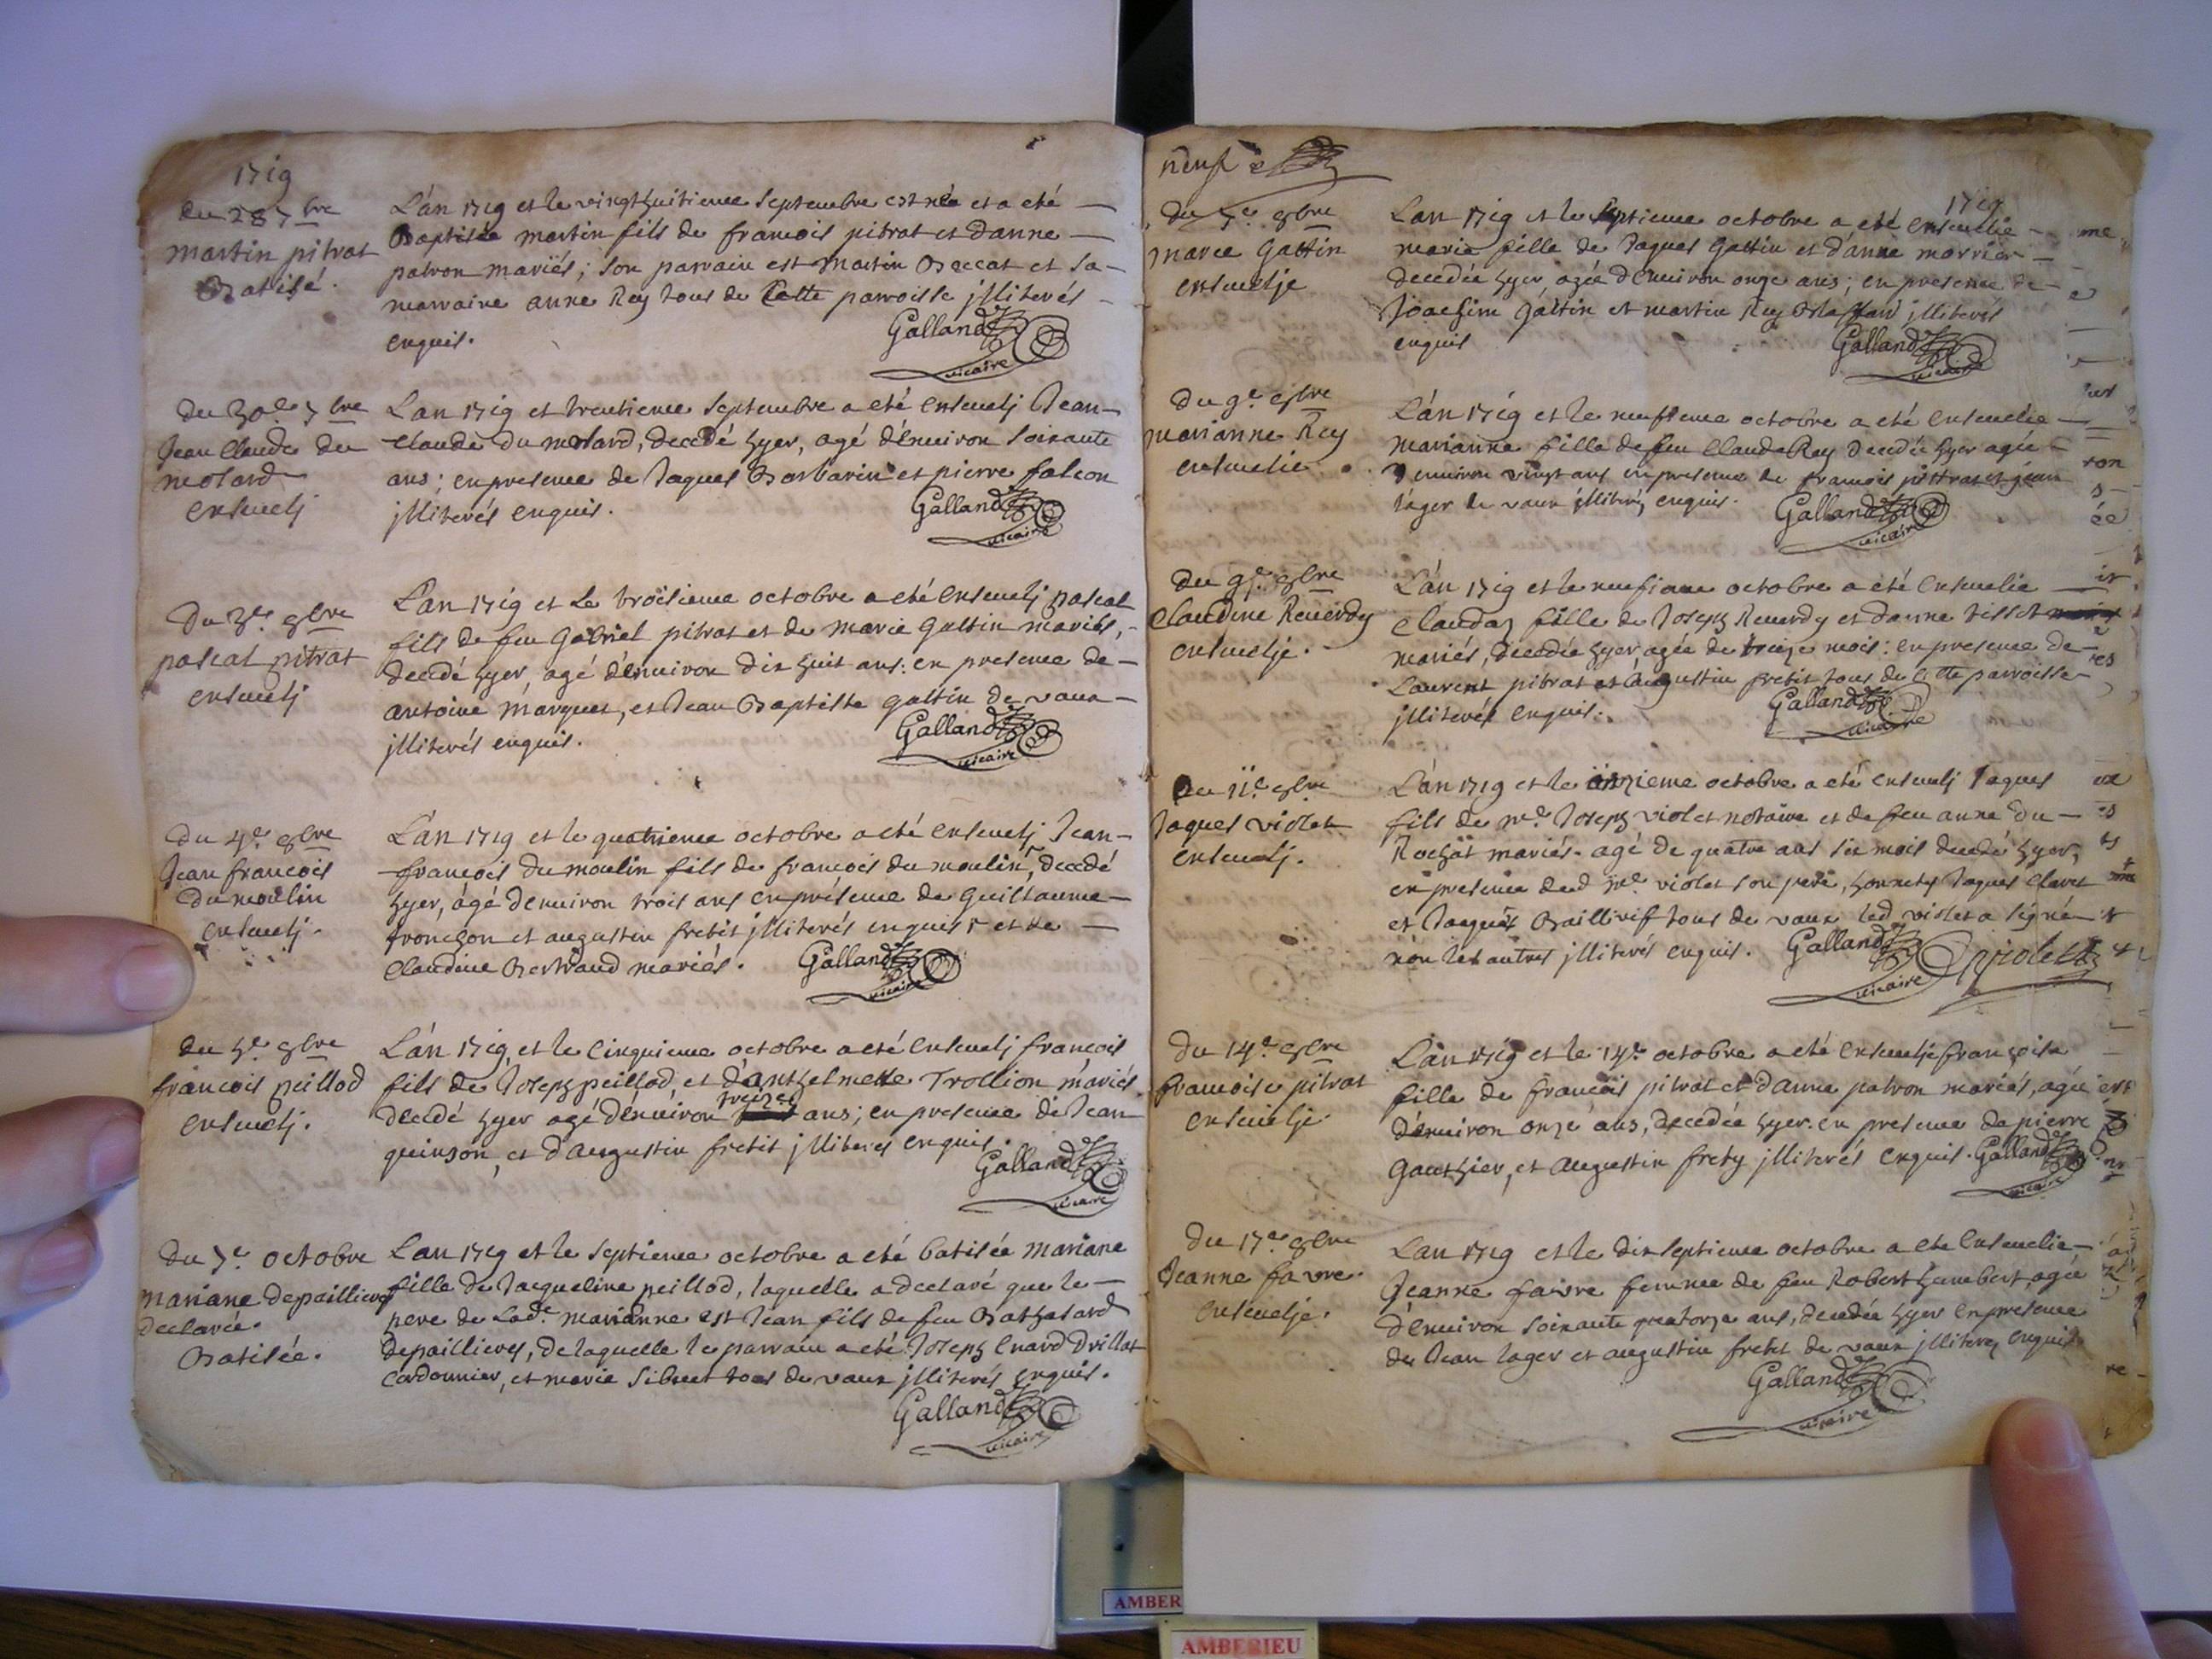 1719
du 28 7bre
martin pitrat
Batisé.
L'an 1719 et le vingthuitieme Septembre est née et a eté
Baptisée martin fils de francois pitrat et d'anne
patron mariés; son parrain est martin Baccat et sa
marraine anne Rey tous de Cette parroisse jlliterés
enquis.
Galland
vicaire
du 30e 7bre
Jean Claude du
molard
ensuelj
L'an 1719 et trentieme Septembre a eté ensuelj Jean
Claude du molard, decedé hyer, agé d'enuiron soixante
ans; en presence de Jaques Barbarin et pierre falcon
jlliterés enquis.
Galland
vicaire
du 3e 8bre
pascal pitrat
ensuelj
L'an 1719 et Le troisieme octobre a eté ensuelj pascal
fils de feu Gabriel pitrat et de marie gattin mariés,
decedé hyer, agé d'enuiron dix huit ans: en presence de
antoine marquet, et Jean Baptiste gattin de vaux
jlliterés enquis.
Galland
vicaire
du 4e 8bre
Jean francois
du moulin
ensuelj.
L'an 1719 et le quatrieme octobre a eté ensuelj Jean
francois du moulin fils de francois du moulin, decedé
hyer, agé d'enuiron trois ans en présence de guillaume
tronchon et augustin fretit jlliterés enquis et de
Claudine Bertrand mariés.
Galland
vicaire
du 5e 8bre
francois peillod
ensuelj.
L'an 1719 et le Cinquieme octobre a eté ensuelj francois
fils de Joseph peillod, et d'anthelmette Trollion mariés
treize
decedé hyer agé d'enuiron ans; en presence de Jean
quinson, et d'augustin fretit jlliterés enquis.
Galland
vicaire
du 7e octobre
mariane depaillieres
declarée.
Batisée.
L'an 1719 et le septieme octobre a eté batisée mariane
fille de Jacqueline peillod, laquelle a declaré que le
pere de Lade marianne est Jean fils de feu Balthazard
depaillieres, de laquelle le parrain a eté Joseph Enard Drillat
Cordonnier, et marie Sibuet tous de vaux jlliterés enquis.
Galland
vicaire
neuf
1719
du 7e 8bre
marie Gattin
ensuelje
L'an 1719 et le septieme octobre a eté ensuelie
marie fille de Jaques Gattin et d'anne morrier
decedée hyer, agée d'enuiron onze ans; en presence de
Joachim gattin et martin Rey jlliterés
enquis
Galland
vicaire
du 9e 8bre
marianne Rey
ensuelie
L'an 1719 et le neufieme octobre a eté ensuelie
marianne fille de feu Claude Rey decedée hyer agée
d'enuiron vingt ans en presence de francois pittrat et jean
lager de vaux jlliterés enquis.
Galland
vicaire
du 9e 8bre
Claudine Reuerdy
ensuelje.
L'an 1719 et le neufieme octobre a eté ensuelie
Clauda fille de Joseph Reuerdy et d'anne tisset
mariés, decedée hyer, agée de treize mois: en presence de
Laurent pitrat et augustin fretit tous de Cette parroisse
jlliterés enquis.
Galland
vicaire
du 11e 8bre
Jaques violet
ensuelj.
L'an 1719 et le onzieme octobre a eté ensuelj Jaques
fils de me Joseph violet notaire et de feu anne du
Rochat mariés. agé de quatre ans six mois decedé hyer,
en presence dud me violet son pere, honnetes Jaques Claret
et Jacques Baillivif tous de vaux led violet a signé
non les autres jlliterés enquis.
Galland
vicaire
violet
du 14e 8bre
francoise pitrat
ensuelje
L'an 1719 et le 14e octobre a eté ensuelje francoise
fille de francois pitrat et d'anne patron mariés, agée
d'enuiron onze ans, decedée hyer. en presence de pierre
Gauthier, et augustin frety jlliterés enquis.
Galland
vicaire
du 17e 8bre
Jeanne favre.
ensuelje.
L'an 1719 et le dix septieme octobre a eté ensuelie
Jeanne faivre femme de feu Robert humbert, agée
d'enuiron soixante quatorze ans, decedée hyer en presence
de Jean lager et augustin fretit de vaux jlliterés enquis.
Galland
vicaire
AMBER
AMBERIEU